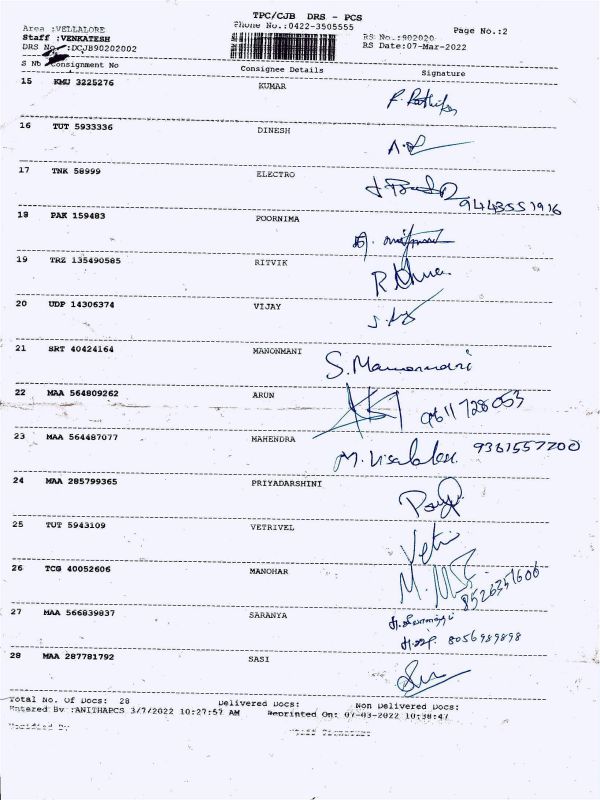 TPC/CJB DRS - PCS
Area :VELLALORE
Phone No.:0422-3505555
Page No.:2
Staff :VENKATESH
RS No.:902020
DRS No :DCJB90202002
RS Date:07-Mar-2022
S Nb Consignment No Consignee Details Signature
15 KMU 3225276 KUMAR
16 TUT 5933336 DINESH
17 TNK 58999 ELECTRO
9443551916
18 PAK 159483 POORNIMA
19 TRZ 135490585 RITVIK
20 UDP 14306374 VIJAY
21 SRT 40424164 MANONMANI S. Manonmani
22 MAA 564809262 ARUN
9611728053
23 MAA 564487077 MAHENDRA 9361557200
24 MAA 285799365 PRIYADARSHINI
25 TUT 5943109 VETRIVEL Vetri
26 TCG 40052606 MANOHAR
8526351606
27 MAA 566839837 SARANYA
8056989898
28 MAA 287781792 SASI
Total No. Of Docs: 28 Delivered Docs: Non Delivered Docs:
Entered By :ANITHAPCS 3/7/2022 10:27:57 AM Reprinted On: 07-03-2022 10:38:47
Verified By Staff Signature